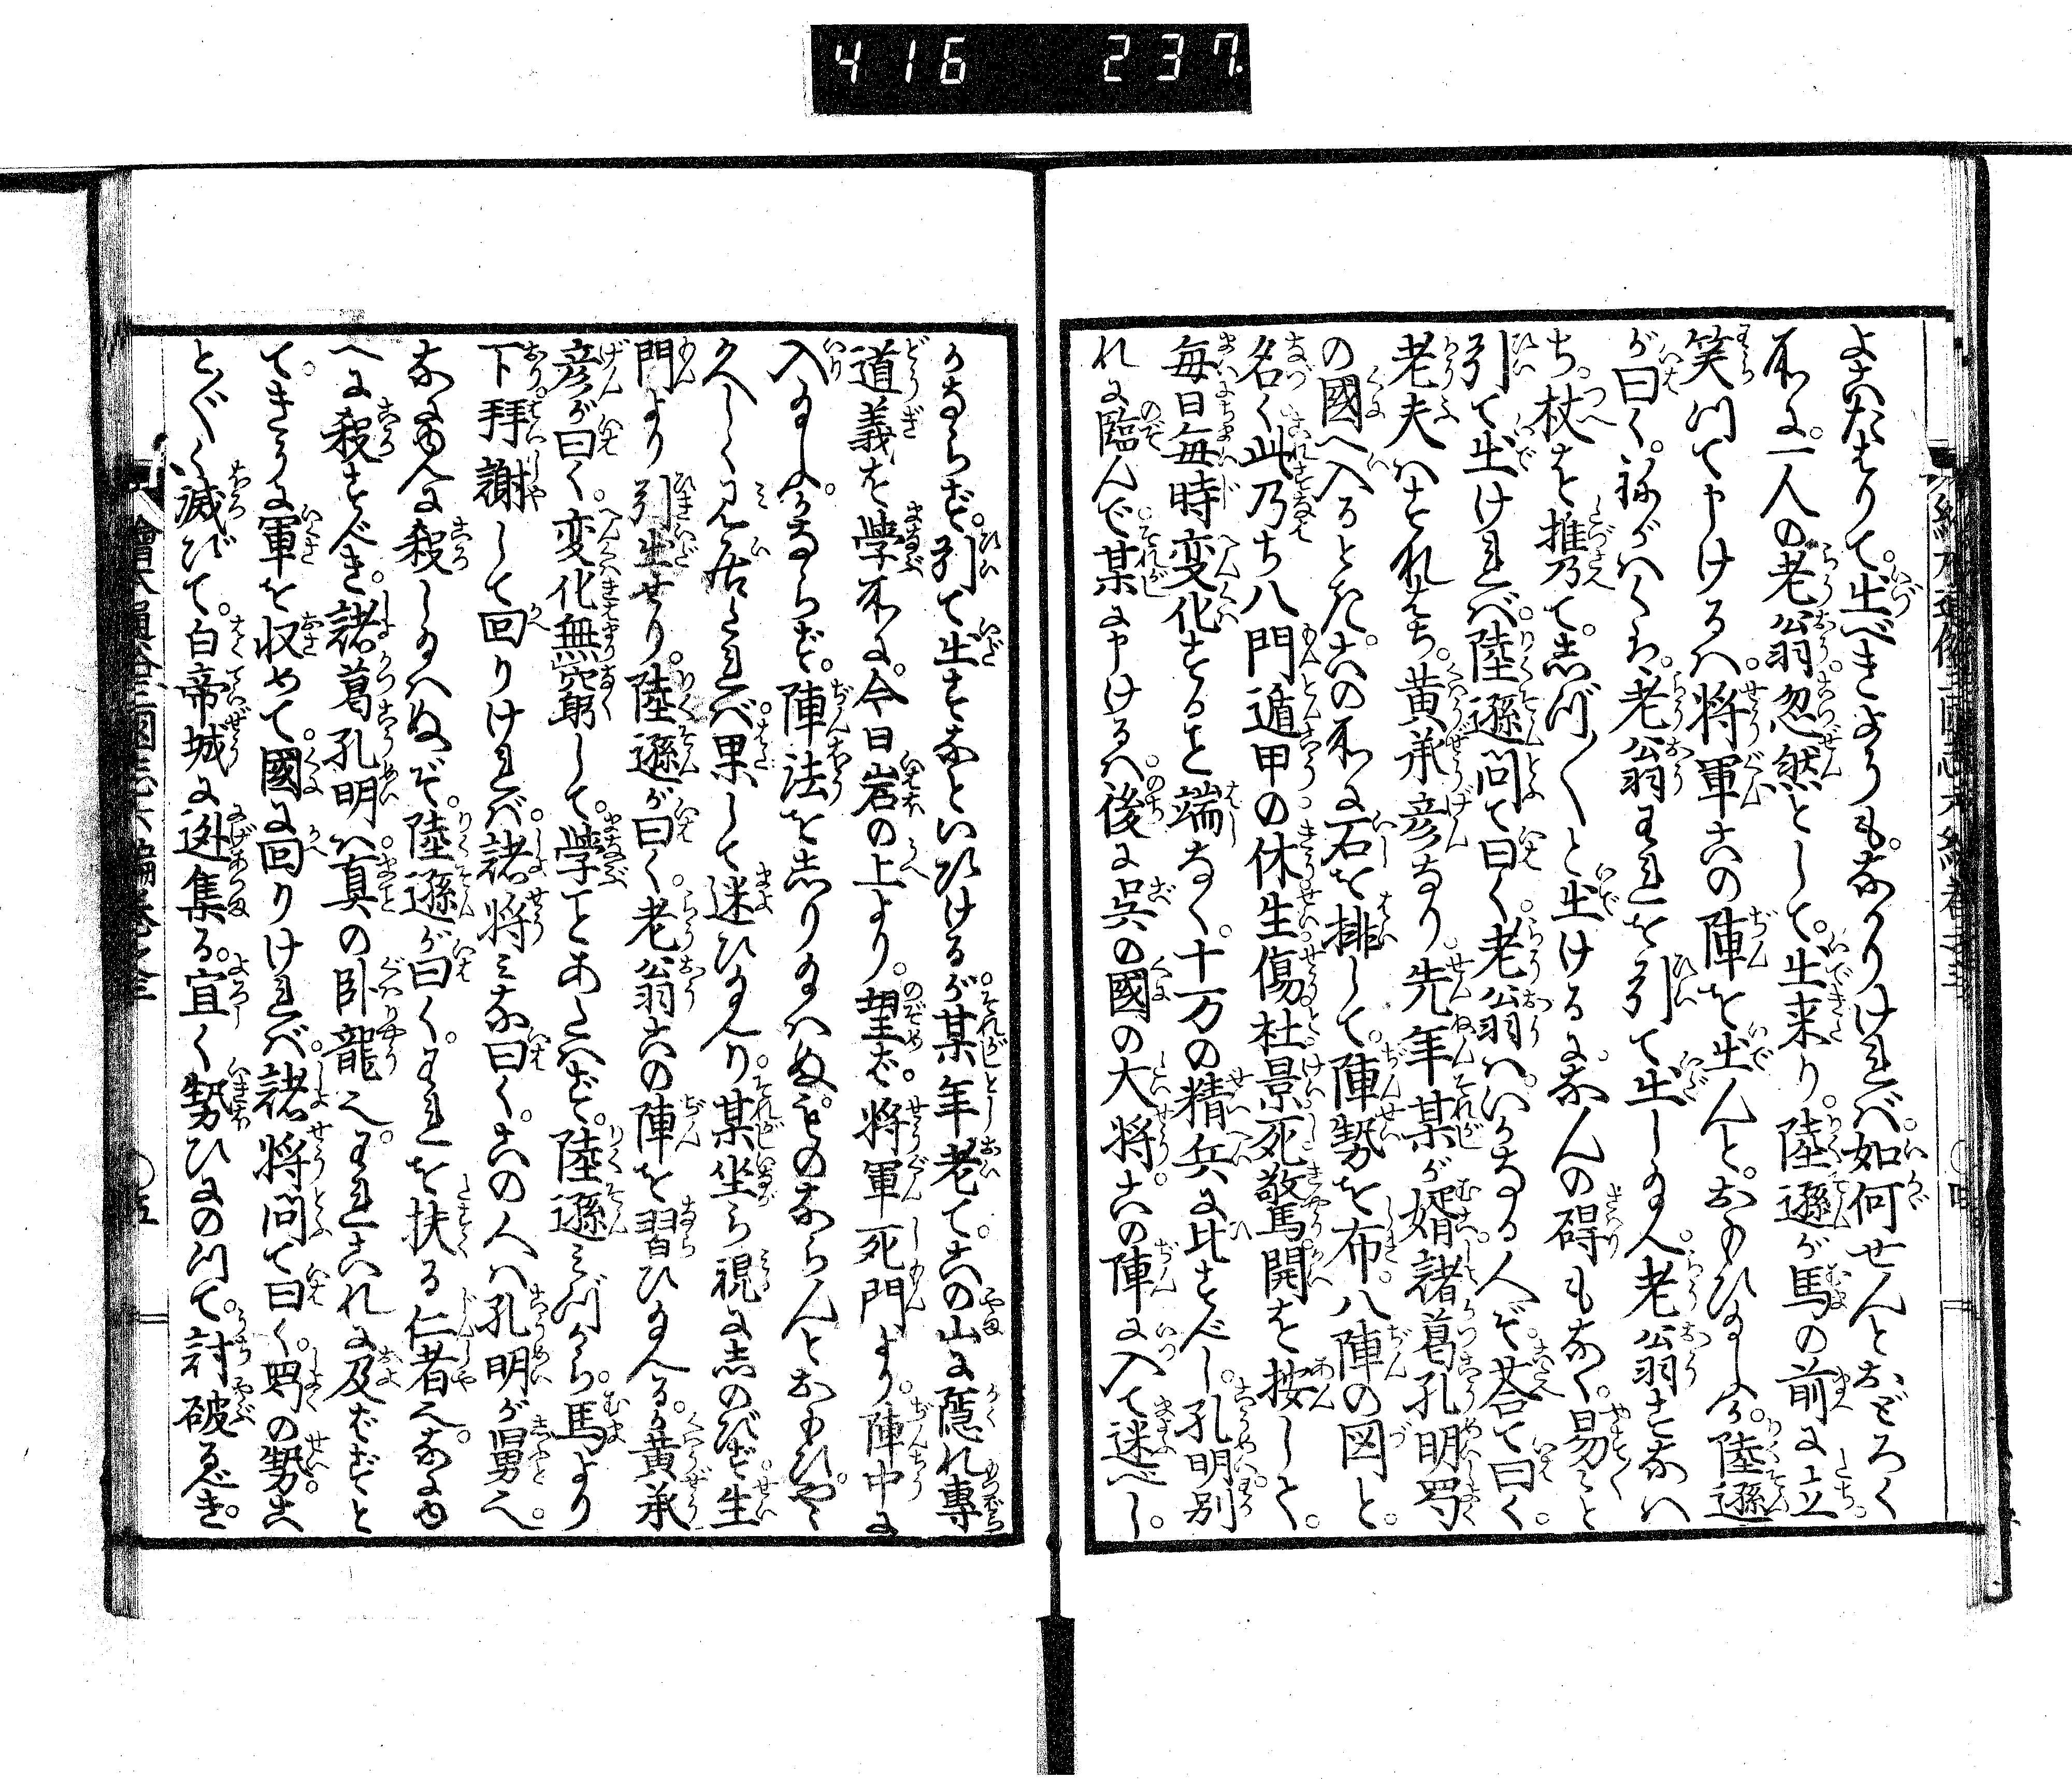 416 237.
よこたはりて。出べきやうもなかりけれバ。如何せんとおどろく
所に。一人の老翁忽然として。出来り。陸遜が馬の前に立
笑つて申けるハ。将軍この陣を出んと。おもひ給ふか。陸遜
が曰く。ねがハくハ。老翁われを引て出し給へ。老翁すなハ
ち。杖を携て。志づ〱と出けるに。なんの碍もなく。易〻と
引て出けれバ。陸遜問て曰く。老翁ハ。いかなる人ぞ。答て曰く。
老夫ハすなはち。黄承彦なり。先年某が婿。諸葛孔明。蜀
の國へ入るとき。この所に石を排して。陣勢を布。八陣の図と
名く此乃ち八門遁甲の休生傷杜景死驚開を按じて。
毎日毎時変化すること端なく。十万の精兵に比すべし。孔明別
れに臨んで。某に申けるハ。後に呉の國の大将。この陣に入て迷べし。
かならず。引て出すなといひけるが。某年老て。この山に隠れ専
道義を学所に。今日岩の上より。望ば。将軍死門より。陣中に
入給ふ。かならず。陣法を志り給ハぬものならんとおもひ。や〻
久しく見居たれバ。果して迷ひ給へり。某坐ら視に志のびず。生
門より引出せり。陸遜が曰く。老翁この陣を習ひ給へるか。黄承
彦が曰く。変化無窮して。学ことあたハず。陸遜みづから。馬より
下。拝謝して回りけれバ。諸将みな曰く。この人ハ孔明が舅也。
なにゆへに殺し給ハぬぞ。陸遜が曰く。われを扶る仁者也。なにゆ
へに殺すべき。諸葛孔明ハ。真の臥龍也。われこれに及ばずと
て。きうに軍を収めて。國に回りけれバ。諸将問て曰く。蜀の勢。こ
とごとく滅びて。白帝城に迯集る。宜く勢ひにのつて。討破るべき。